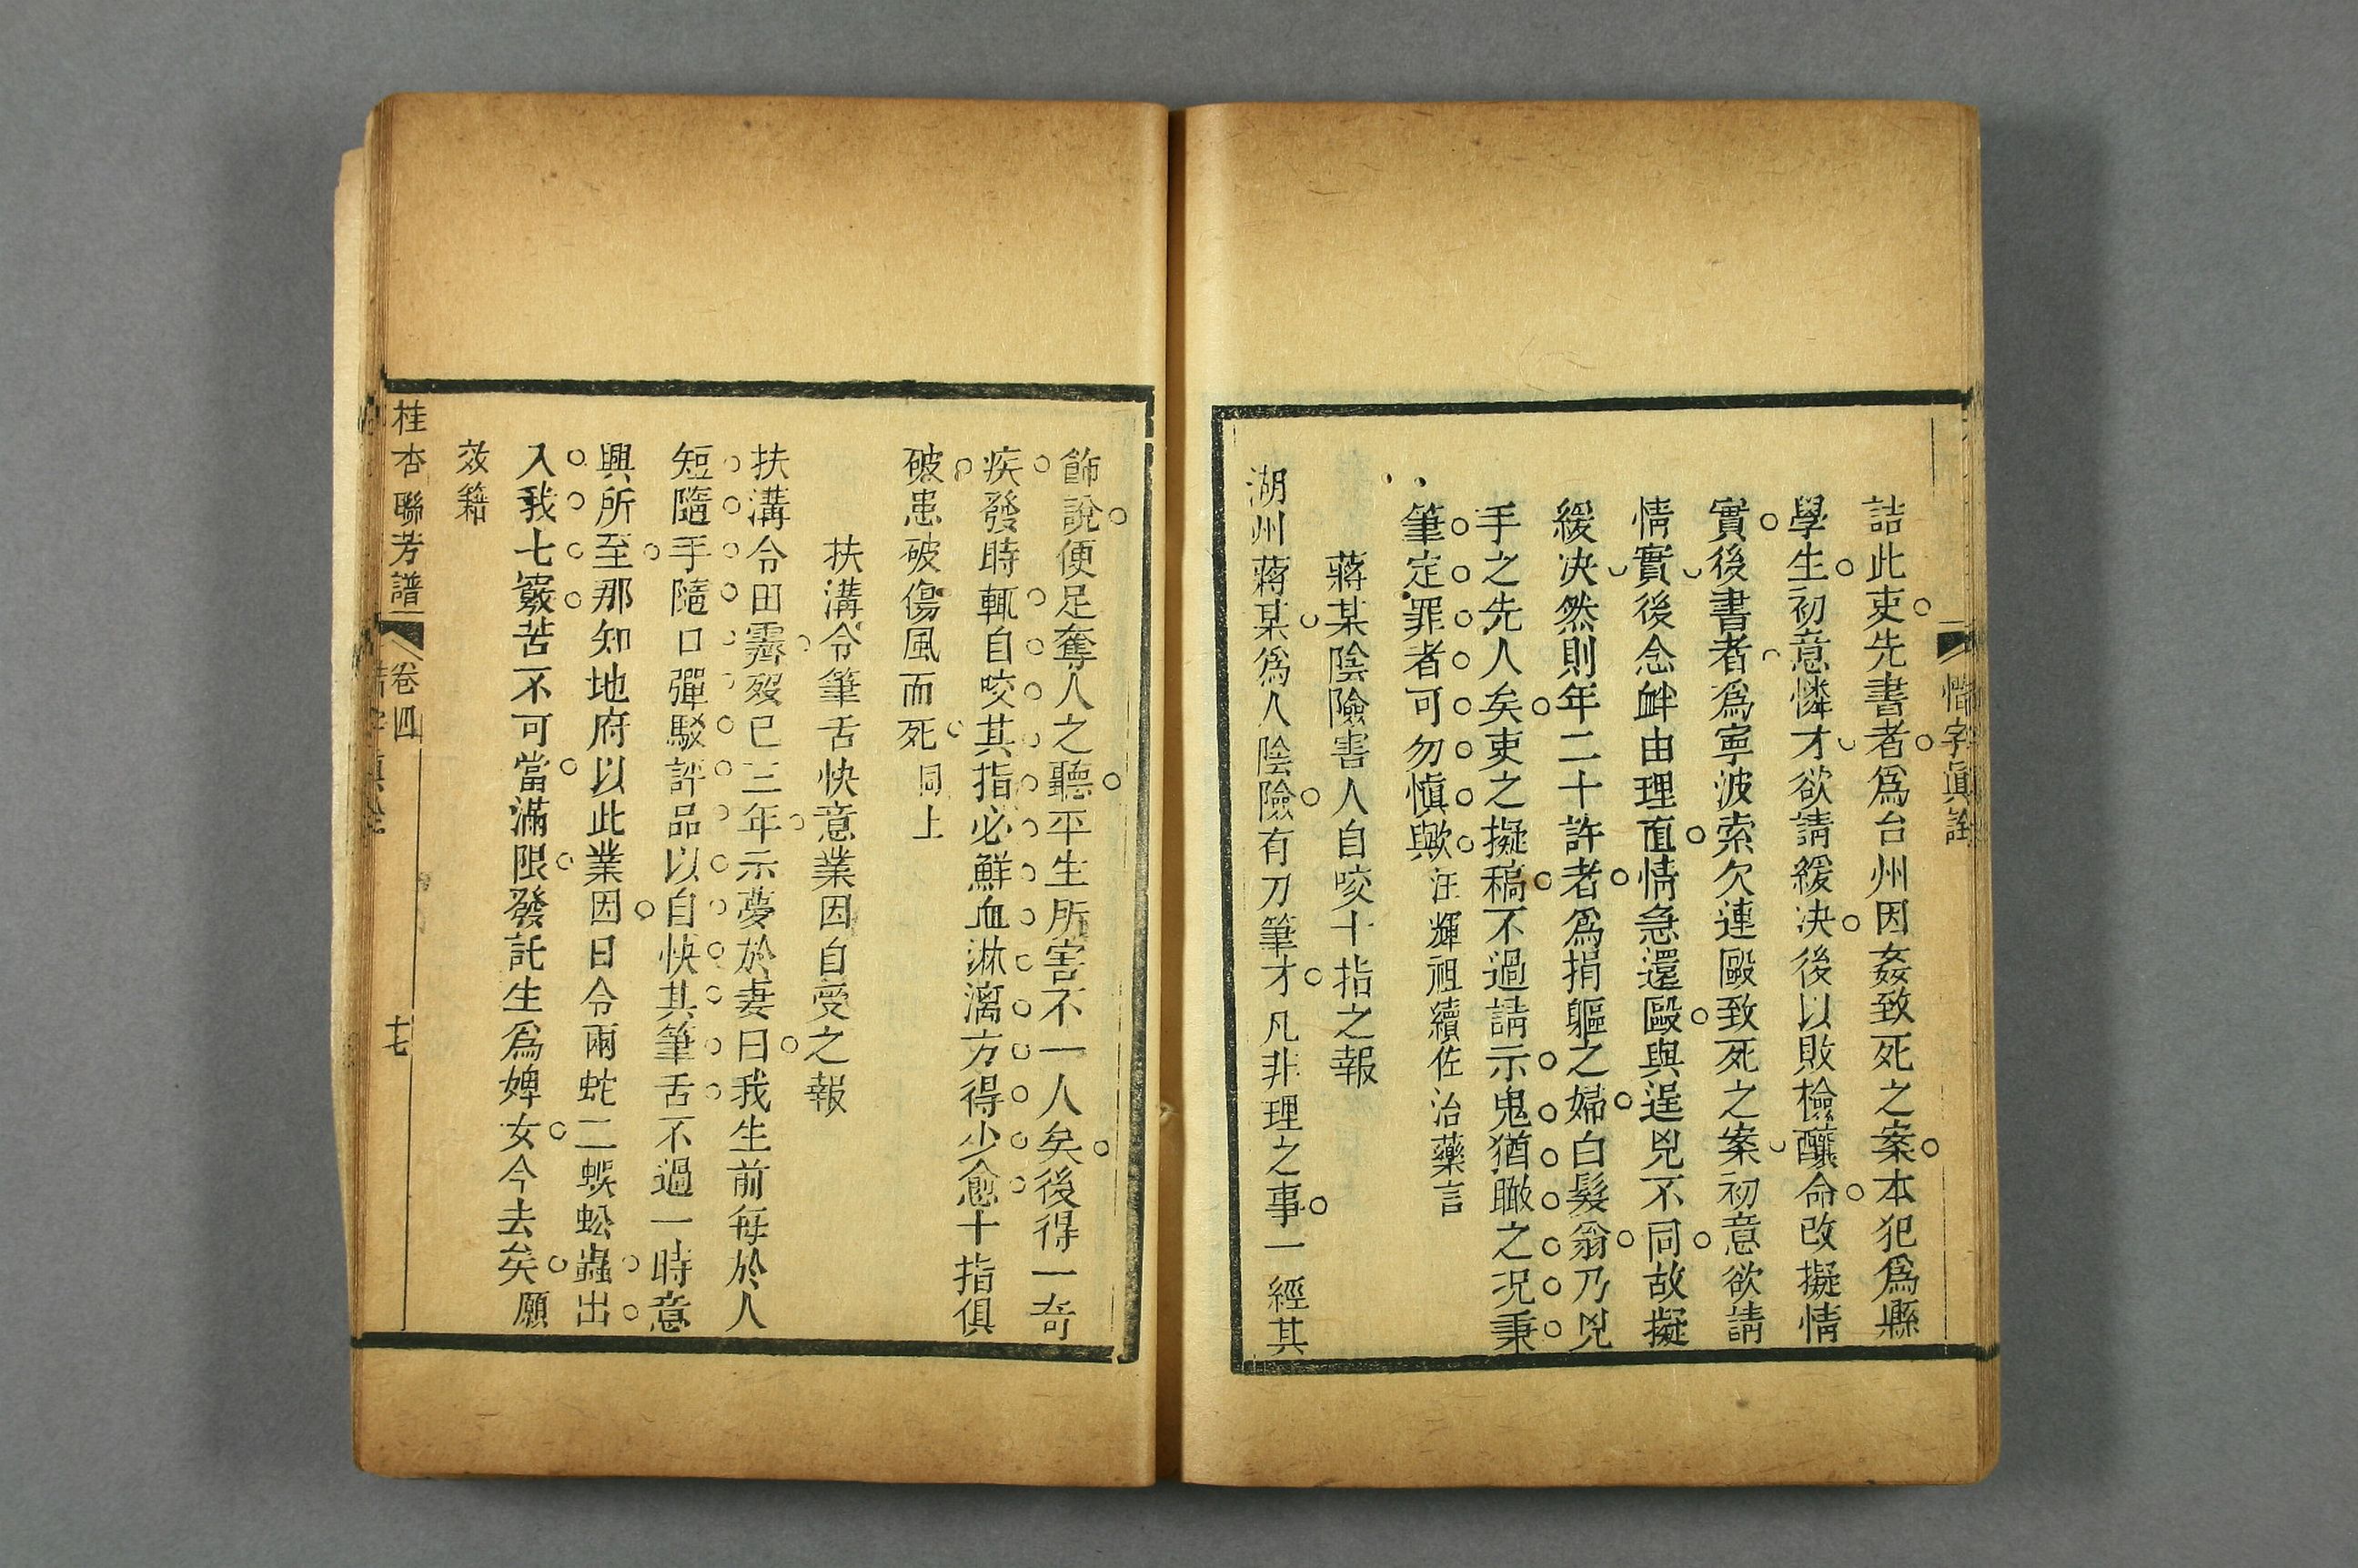 惜字眞詮
詰此吏先書者爲台州因姦致死之案本犯爲縣
學生初意憐才欲請緩决後以敗檢釀命改擬情
實後書者爲寕波索欠連毆致死之案初意欲請
情實後念衅由理直情急還毆與逞兇不同故擬
緩决然則年二十許者爲捐軀之婦白髮翁乃兇
手之先人矣吏之擬稿不過請示鬼猶瞰之况秉
筆定罪者可勿愼歟汪輝祖續佐治藥言
蔣某陰險害人自咬十指之報
湖州蔣某爲人陰險有刀筆才凡非理之事一經其
飾說便足奪人之聽平生所害不一人矣後得一奇
疾發時輒自咬其指必鮮血淋漓方得少愈十指俱
破患破傷風而死同上
扶溝令筆舌快意業因自受之報
扶溝令田霽歿已三年示夢於妻曰我生前每於人
短隨手隨口彈駁評品以自快其筆舌不過一時意
興所至那知地府以此業因日令兩蛇二蜈蚣蟲出
入我七竅苦不可當滿限發託生爲婢女今去矣願
效籍
桂杏聯芳譜 卷四 十七